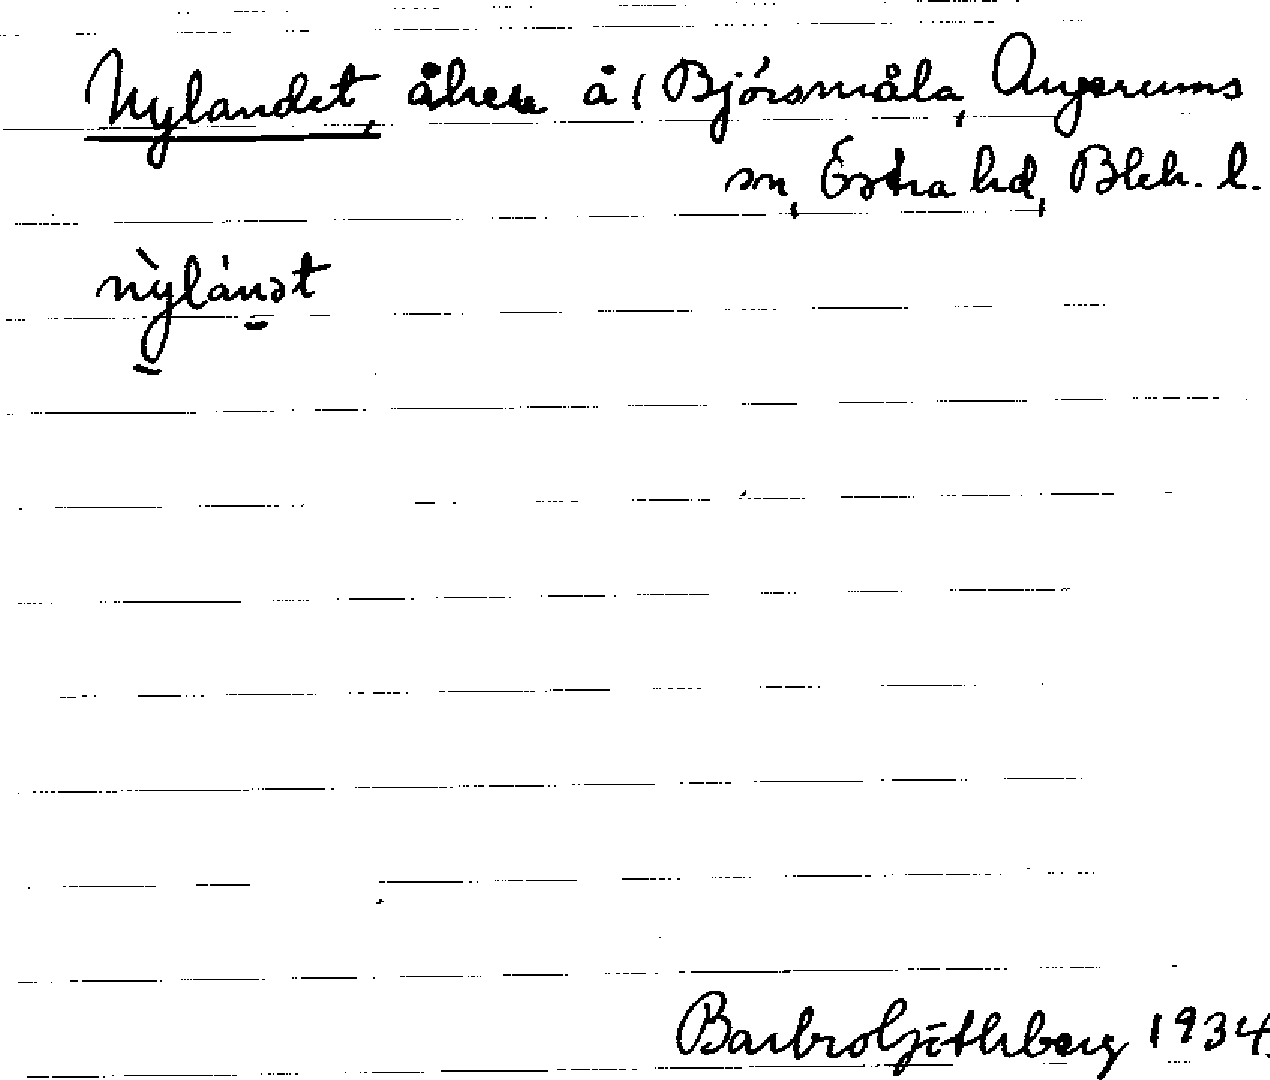 Nylandet, åker å 1 Björsmåla, Augerums
sn, Östra hd, Blek. l.
nỳlánət
Barbro Göthberg 1934.